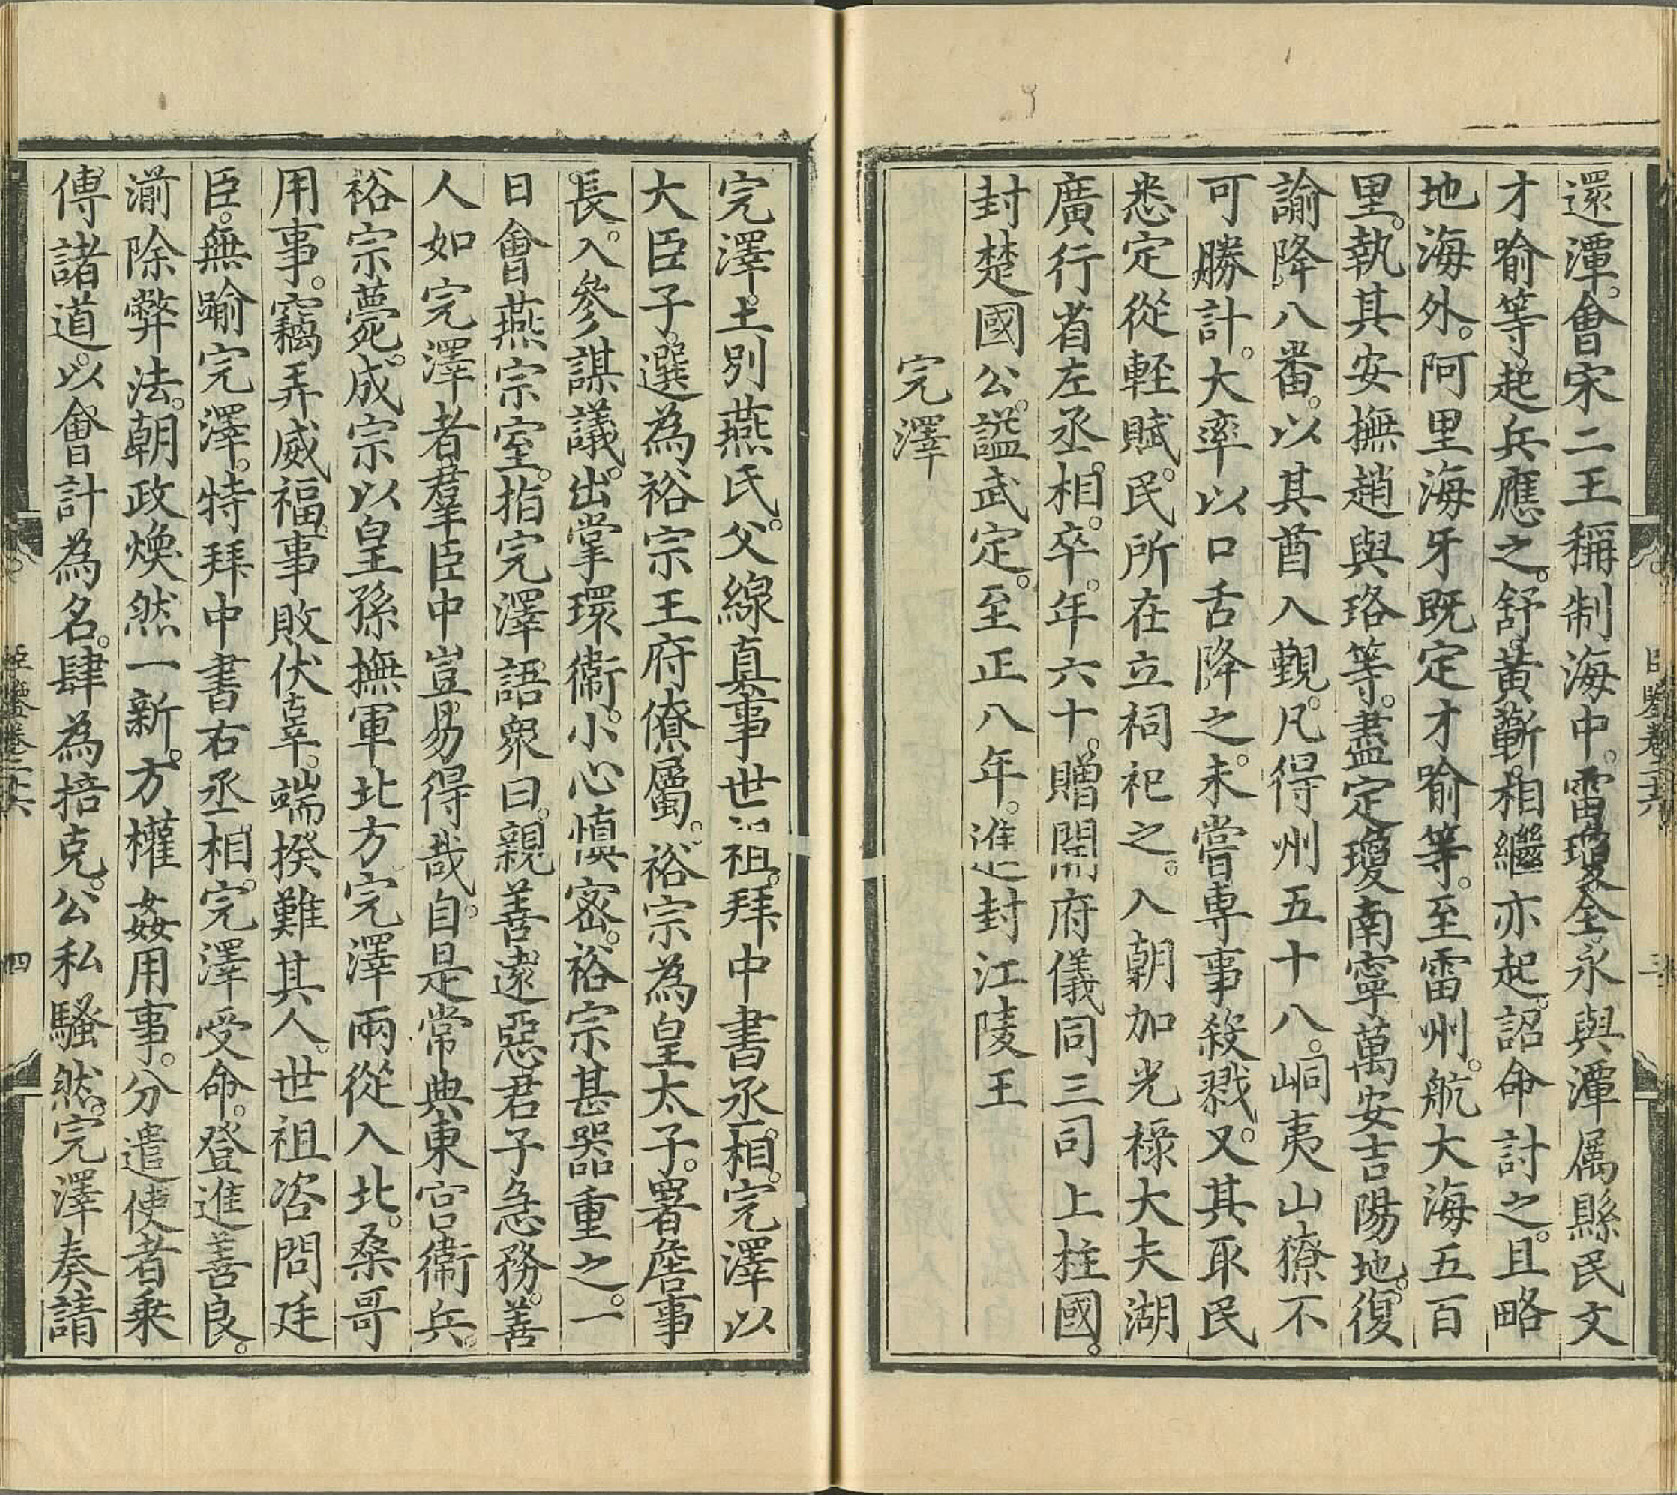 還潭。會宋二王稱制海中。雷瓊全永與潭属縣民文
才喻等。起兵應之。舒黃蘄。相繼亦起。詔命討之。且略
地海外。阿里海牙既定才喻等。至雷州。航大海五百
里。執其安撫趙與珞等。盡定瓊南寧萬安吉陽地。復
諭降八番。以其酋入覲。凡得州五十八。峒夷山獠不
可勝計。大率以口舌降之。未嘗專事殺戮。又其取民
悉定從軽賦。民所在立祠祀之。入朝加光祿大夫湖
廣行省左丞相。卒。年六十。贈開府儀同三司上柱國。
封楚國公。諡武定。至正八年。進封江陵王
完澤
完澤。土别燕氏。父線真。事世祖。拜中書丞相。完澤以
大臣子。選為裕宗王府僚屬。裕宗為皇太子。署詹事
長。入參謀議。出掌環衞。小心慎宻。裕宗甚噐重之。一
日會燕宗室。指完澤語衆曰。親善逺惡君子急務。善
人如完澤者。羣臣中豈易得哉。自是常典東宮衞兵。
裕宗薨。成宗以皇孫撫軍北方。完澤兩從入北。桑哥
用事。竊弄威福。事敗伏辜。端揆難其人。世祖咨問廷
臣。無踰完澤。特拜中書右丞相。完澤受命。登進善良。
湔除弊法。朝政煥然一新。方權姦用事。分遣使者乗
傳諸道。以會計為名。肆為掊克。公私騷然。完澤奏請
臣鑒卷二六
四